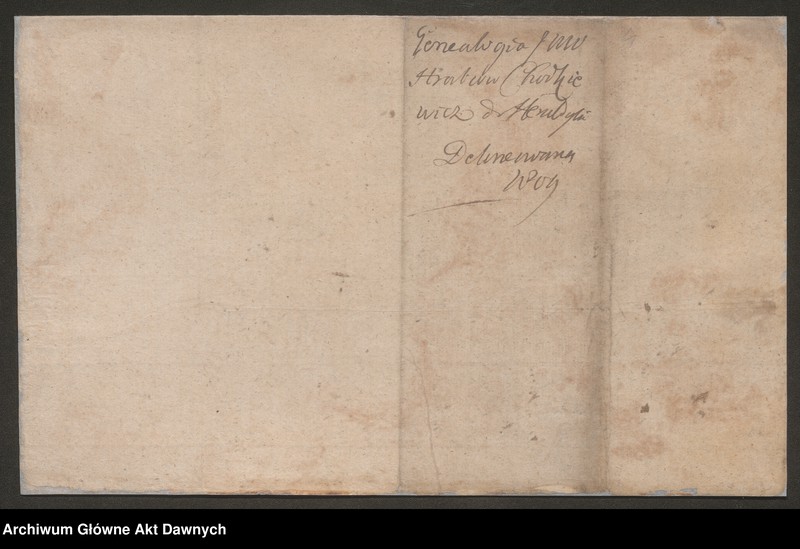 Genealogia JMW
Hrabiów Chodkie
wicz d Heraldyki
Delineowana
Archiwum Główne Akt Dawnych